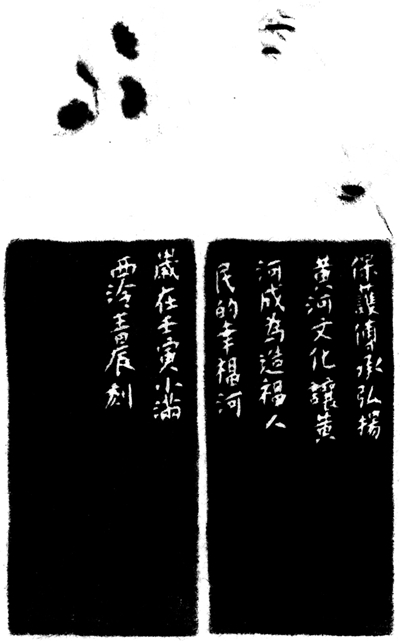 保護傳承弘揚
黃河文化讓黃
河成為造福人
民的幸福河
歲在壬寅小滿
西泠辰刻